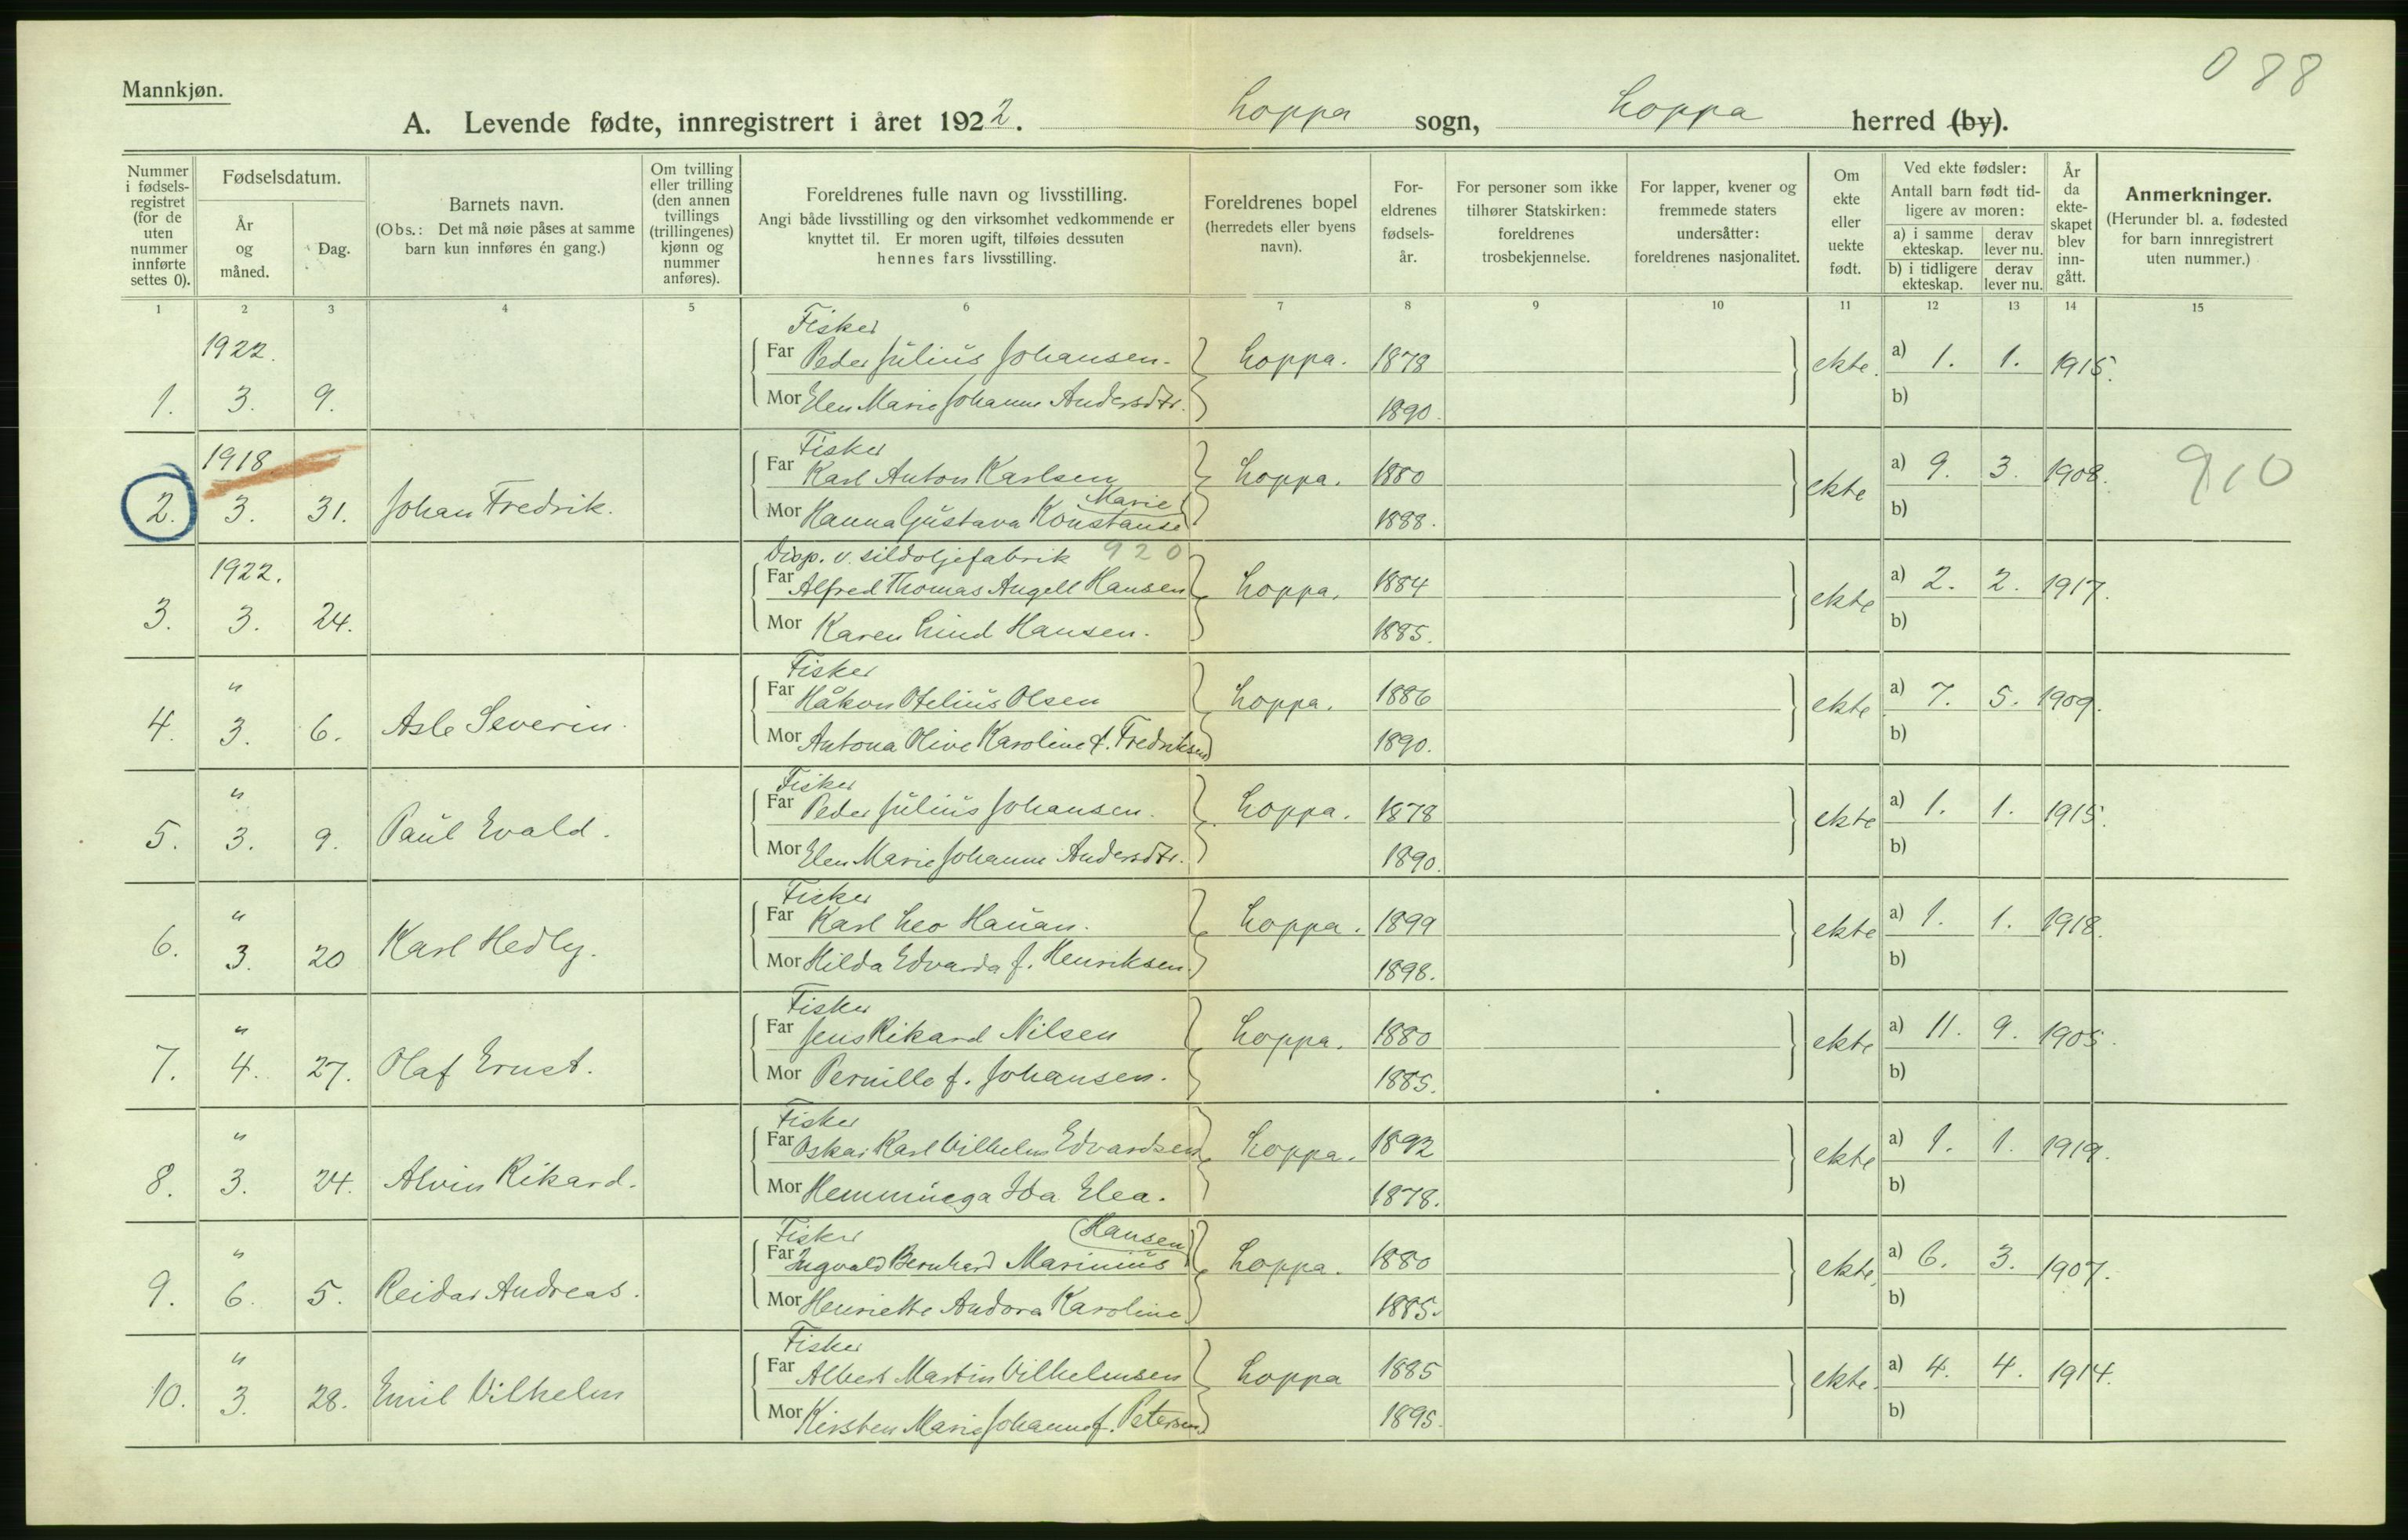 088
Mannkjøn.
A. Levende fødte, innregistrert i året 1922. Loppa sogn, Loppa herred (by).
Nummer i fødsels-registret (for de uten nummer innførte settes 0).
Fødselsdatum.
År og måned.
Dag.
Barnets navn.
(Obs.: Det må nøie påses at samme barn kun innføres én gang.)
Om tvilling eller trilling (den annen tvillings (trillingenes) kjønn og nummer anføres).
Foreldrenes fulle navn og livsstilling.
Angi både livsstilling og den virksomhet vedkommende er knyttet til. Er moren ugift, tilføies dessuten hennes fars livsstilling.
Foreldrenes bopel (herredets eller byens navn).
For-eldrenes fødsels-år.
For personer som ikke tilhører Statskirken: foreldrenes trosbekjennelse.
For lapper, kvener og fremmede staters undersåtter: foreldrenes nasjonalitet.
Om ekte eller uekte født.
Ved ekte fødsler:
Antall barn født tid-ligere av moren:
a) i samme ekteskap. derav lever nu.
b) i tidligere ekteskap. derav lever nu.
År da ekte-skapet blev inn-gått.
Anmerkninger.
(Herunder bl. a. fødested for barn innregistrert uten nummer.)
1 2 3 4 5 6 7 8 9 10 11 12 13 14 15
Fisker
1922. Far Peder Julius Johansen. Loppa. 1878 ekte. a) 1. 1. 1915.
1. 3. 9. Mor Elen Marie Johanne Andersdtr. 1890. b)
Fisker
1918 Far Karl Anton Karlsen Loppa. 1880 ekte a) 9. 3. 1908. 910
Marie
2. 3. 31. Johan Fredrik. Mor Hanna Gustava Konstanse 1888. b)
Disp. v. sildoljefabrik 920
1922. Far Alfred Thomas Angell Hansen Loppa. 1884 ekte a) 2. 2. 1917.
3. 3. 24. Mor Karen Lind Hansen. 1885. b)
Fisker
" Far Håkon Otelius Olsen Loppa. 1886 ekte a) 7. 5. 1909.
4. 3. 6. Asle Severin. Mor Antona Olive Karoline f. Fredriksen 1890. b)
Fisker
" Far Peder Julius Johansen. Loppa. 1878 ekte a) 1. 1. 1915.
5. 3. 9. Paul Evald. Mor Elen Marie Johanne Andersdtr. 1890. b)
Fisker
" Far Karl Leo Hauan. Loppa. 1899 ekte a) 1. 1. 1918.
6. 3. 20 Karl Hedly. Mor Hilda Edvarda f. Henriksen. 1898. b)
Fisker
" Far Jens Rikard Nilsen Loppa. 1880 ekte a) 11. 9. 1905.
7. 4. 27. Olaf Ernst. Mor Pernille f. Johansen. 1885. b)
Fisker
" Far Oskar Karl Vilhelm Edvardsen Loppa. 1892 ekte a) 1. 1. 1919.
8. 3. 24. Alvin Rikard. Mor Hemminega Ida Elea. 1878. b)
Fisker Hansen
" Far Ingvald Bernhard Marinius Loppa. 1880 ekte. a) 6. 3. 1907.
9. 6. 5. Reidar Andreas. Mor Henriette Andora Karoline 1885. b)
Fisker
" Far Albert Martin Vilhelmsen Loppa 1885 ekte. a) 4. 4. 1914.
10. 3. 28. Emil Vilhelm Mor Kirsten Marie Johanne f. Petersen 1895. b)